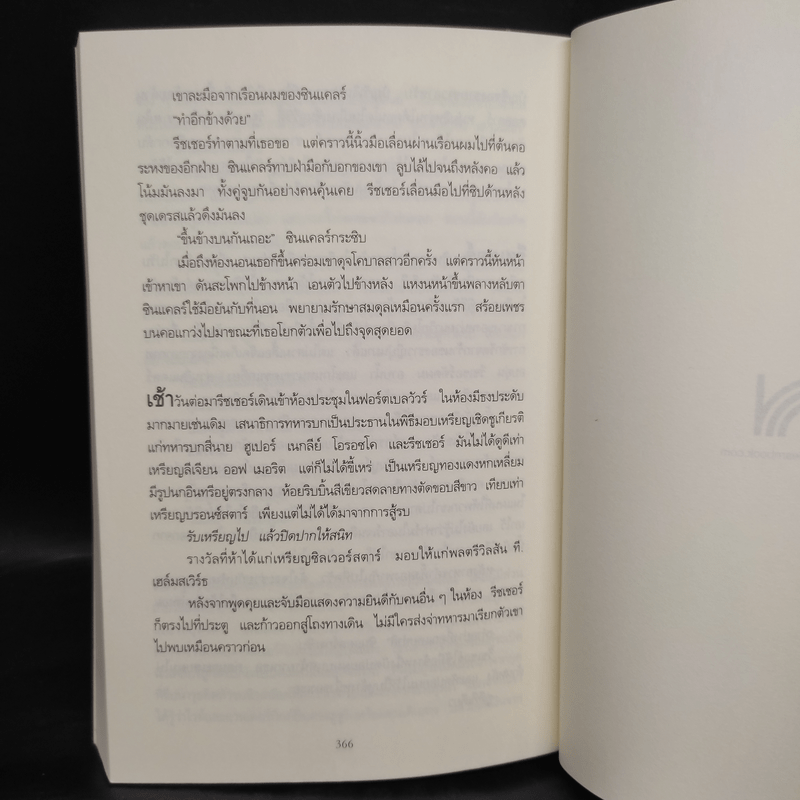 เขาละมือจากเรือนผมของซินแคลร์
"ทำอีกข้างด้วย"
รีชเชอร์ทำตามที่เธอขอ แต่คราวนี้นิ้วมือเลื่อนผ่านเรือนผมไปที่ต้นคอ
ระหงของอีกฝ่าย ซินแคลร์ทาบฝ่ามือกับอกของเขา ลูบไล้ไปจนถึงหลังคอ แล้ว
โน้มมันลงมา ทั้งคู่จูบกันอย่างคนคุ้นเคย รีชเชอร์เลื่อนมือไปที่ซิปด้านหลัง
ชุดเดรสแล้วดึงมันลง
"ขึ้นข้างบนกันเถอะ" ซินแคลร์กระซิบ
เมื่อถึงห้องนอนเธอก็ขึ้นคร่อมเขาดุจโคบาลสาวอีกครั้ง แต่คราวนี้หันหน้า
เข้าหาเขา ดันสะโพกไปข้างหน้า เอนตัวไปข้างหลัง แหงนหน้าขึ้นพลางหลับตา
ซินแคลร์ใช้มือยันกับที่นอน พยายามรักษาสมดุลเหมือนครั้งแรก สร้อยเพชร
บนคอแกว่งไปมาขณะที่เธอโยกตัวเพื่อไปถึงจุดสุดยอด
เช้าวันต่อมารีชเชอร์เดินเข้าห้องประชุมในฟอร์ตเบลวัวร์ ในห้องมีธงประดับ
มากมายเช่นเดิม เสนาธิการทหารบกเป็นประธานในพิธีมอบเหรียญเชิดชูเกียรติ
แก่ทหารบกสี่นาย ฮูเปอร์ เนกลีย์ โอรอซโค และรีชเชอร์ มันไม่ได้ดูดีเท่า
เหรียญลีเจียน ออฟ เมอริต แต่ก็ไม่ได้ขี้เหร่ เป็นเหรียญทองแดงหกเหลี่ยม
มีรูปนกอินทรีอยู่ตรงกลาง ห้อยริบบิ้นสีเขียวสดลายทางตัดขอบสีขาว เทียบเท่า
เหรียญบรอนซ์สตาร์ เพียงแต่ไม่ได้ได้มาจากการสู้รบ
รับเหรียญไป แล้วปิดปากให้สนิท
รางวัลที่ห้าได้แก่เหรียญซิลเวอร์สตาร์ มอบให้แก่พลตรีวิลสัน ที.
เฮล์มสเวิร์ธ
หลังจากพูดคุยและจับมือแสดงความยินดีกับคนอื่น ๆ ในห้อง รีชเชอร์
ก็ตรงไปที่ประตู และก้าวออกสู่โถงทางเดิน ไม่มีใครส่งจ่าทหารมาเรียกตัวเขา
ไปพบเหมือนคราวก่อน
366